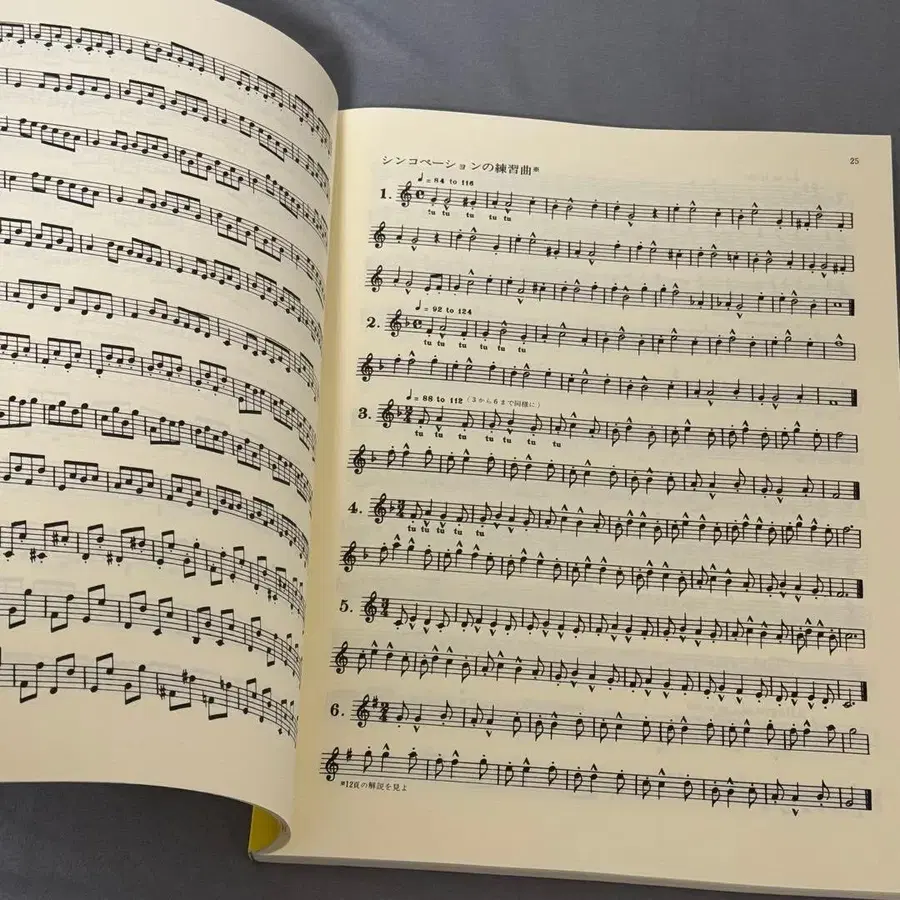 25
シンコペーションの練習曲※
♩= 84 to 116
1.
tu tu tu tu tu
♩= 92 to 124
2.
tu tu tu tu tu tu
♩= 88 to 112 (3から6まで同様に)
3.
tu tu tu tu tu tu tu
4.
tu tu tu tu tu
5.
6.
※12頁の解説を見よ